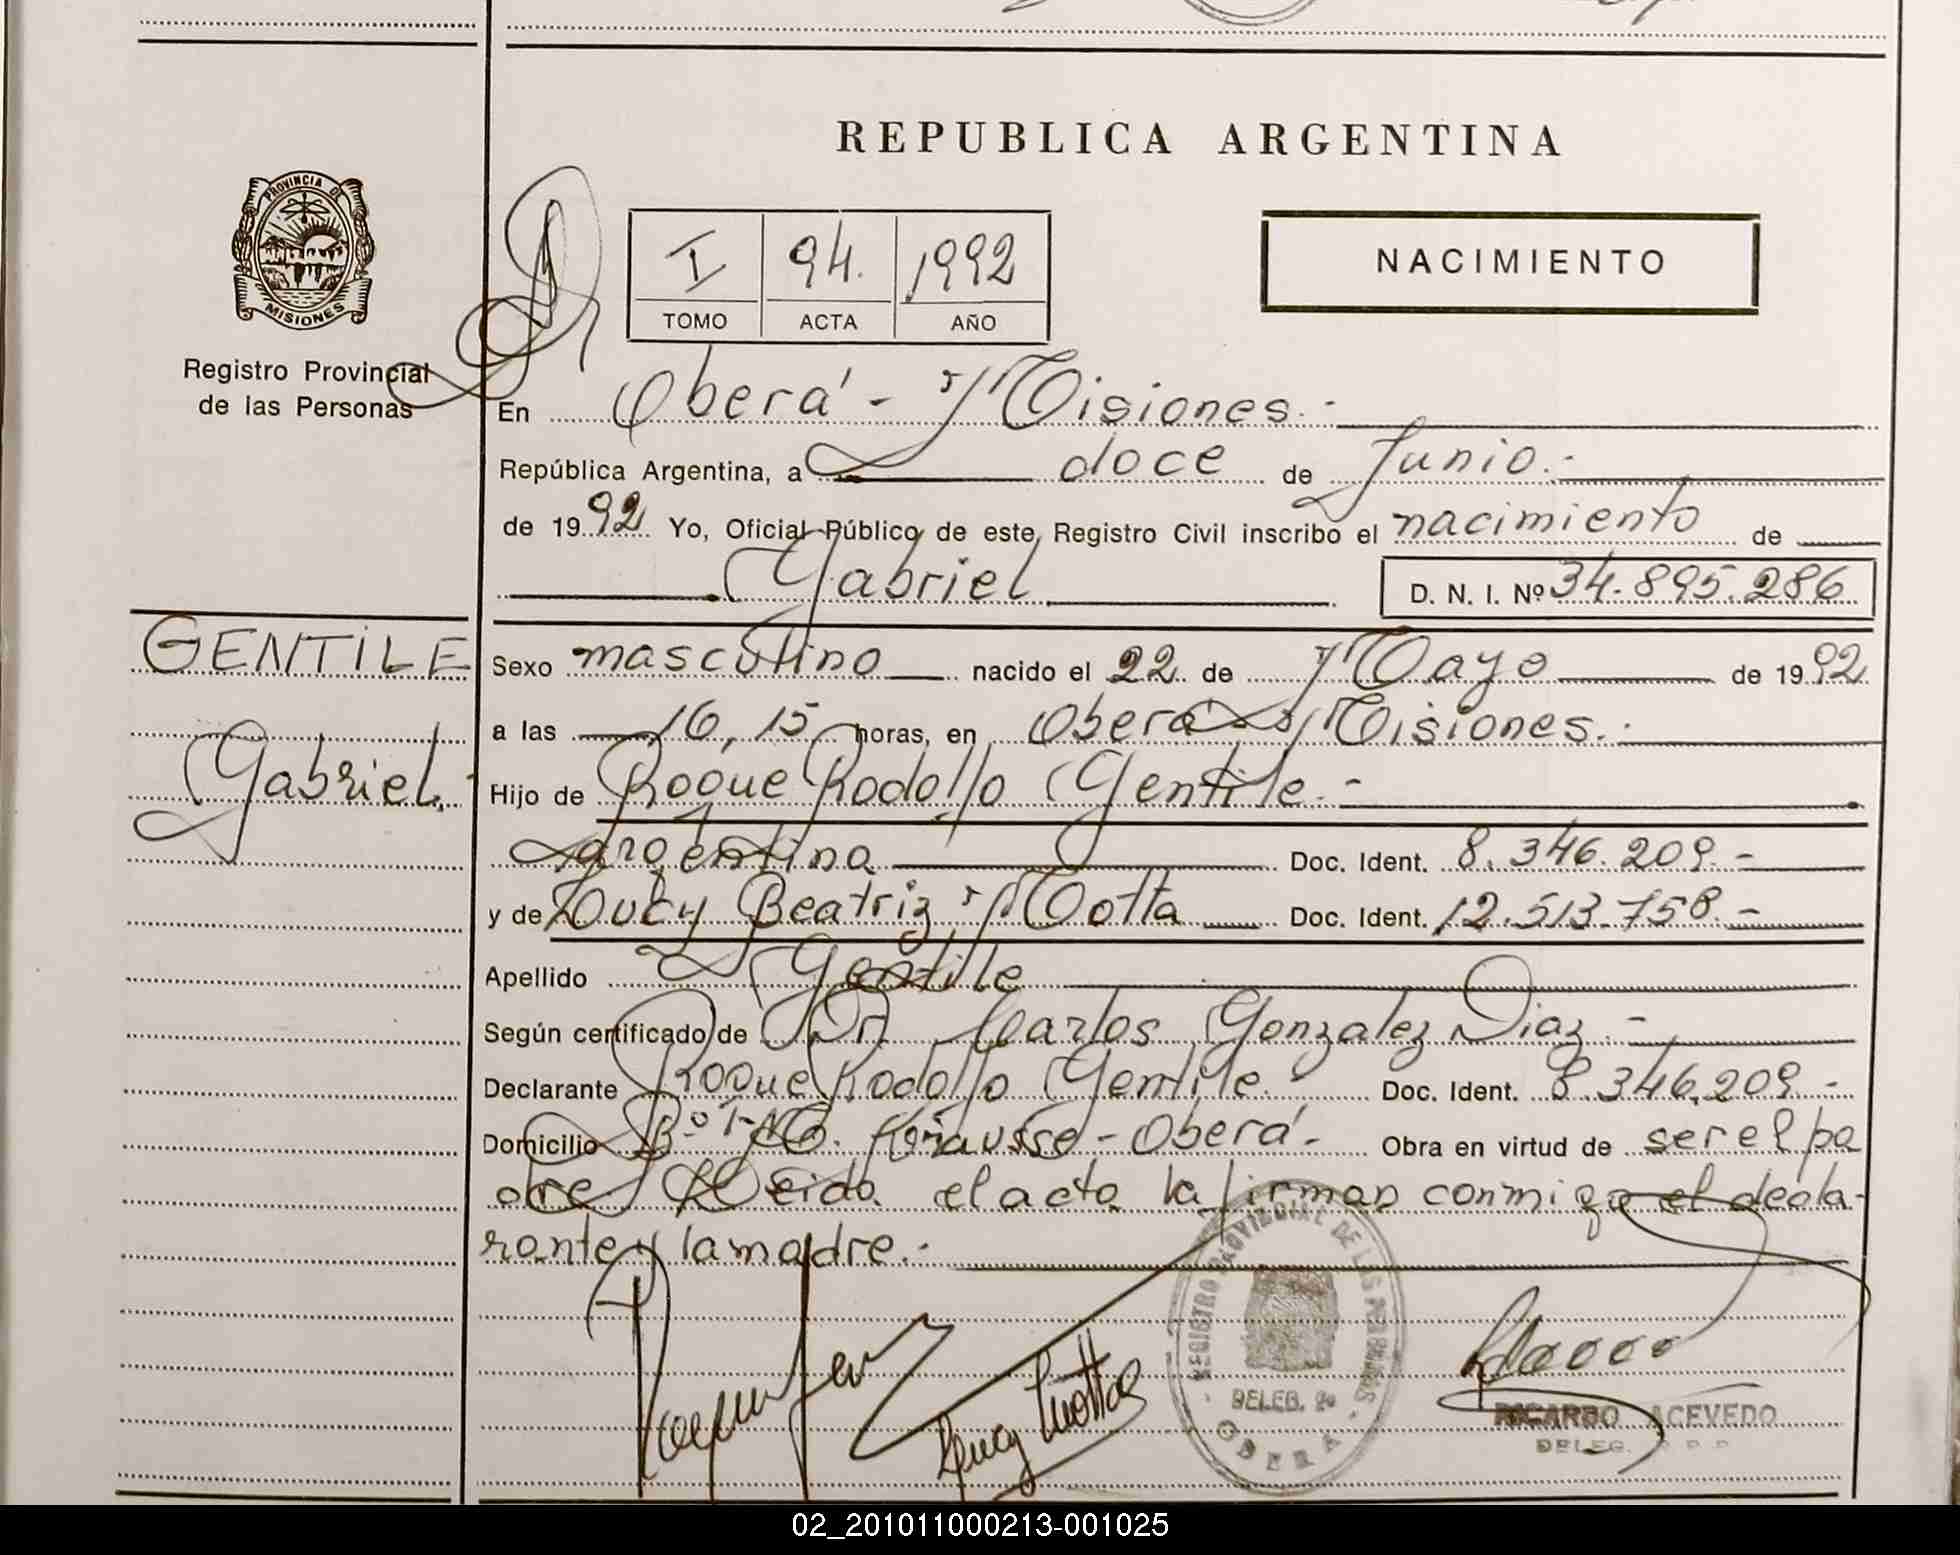 REPUBLICA ARGENTINA
PROVINCIA DE
MISIONES
Registro Provincial
de las Personas
I 94. 1992
TOMO ACTA AÑO
NACIMIENTO
En Oberá - Misiones.-
República Argentina, a doce de Junio.-
de 1992 Yo, Oficial Público de este Registro Civil inscribo el nacimiento de
Gabriel D. N. I. Nº 34.895.286
GENTILE
Gabriel.-
Sexo masculino nacido el 22 de Mayo de 1992
a las 16,15 horas, en Oberá Misiones.-
Hijo de Roque Rodolfo Gentile.-
argentina Doc. Ident. 8.346.209.-
y de Beatriz Motta Doc. Ident. 12.513.758.-
Apellido Gentile
Según certificado de Dr. Carlos Gonzalez Diaz.-
Declarante Roque Rodolfo Gentile.- Doc. Ident. 8.346.209.-
Domicilio Krausse - Oberá.- Obra en virtud de ser el pa
dre. Leida el acta la firman conmigo el decla-
rante y la madre.-
REGISTRO PROVINCIAL DE LAS PERSONAS
DELEG. 2º
OBERA
RICARDO ACEVEDO
DELEG. R. P. P.
02_201011000213-001025